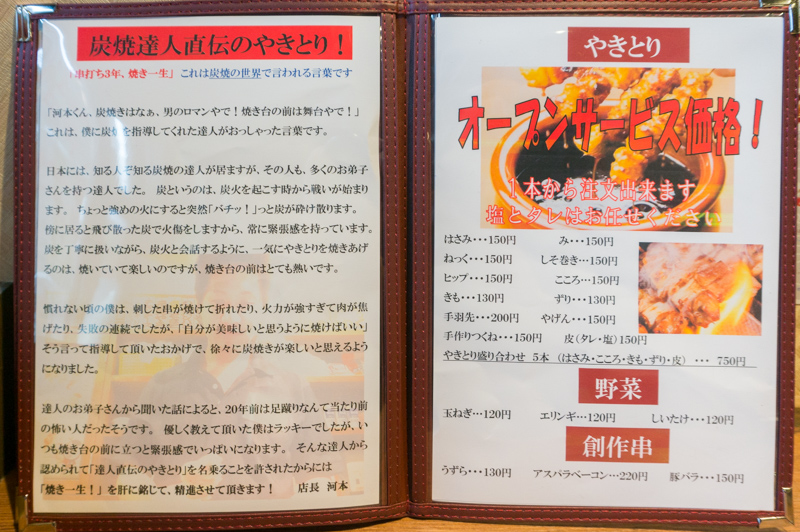 炭焼達人直伝のやきとり！
「串打ち3年、焼き一生」 これは炭焼の世界で言われる言葉です
「河本くん、炭焼きはなぁ、男のロマンやで！焼き台の前は舞台やで！」
これは、僕に炭焼を指導してくれた達人がおっしゃった言葉です。
日本には、知る人ぞ知る炭焼の達人が居ますが、その人も、多くのお弟子
さんを持つ達人でした。 炭というのは、炭火を起こす時から戦いが始まり
ます。 ちょっと強めの火にすると突然「バチッ！」っと炭が砕け散ります。
傍に居ると飛び散った炭で火傷をしますから、常に緊張感を持っています。
炭を丁寧に扱いながら、炭火と会話するように、一気にやきとりを焼きあげ
るのは、焼いていて楽しいのですが、焼き台の前はとても熱いです。
慣れない頃の僕は、刺した串が焼けて折れたり、火力が強すぎて肉が焦
げたり、失敗の連続でしたが、「自分が美味しいと思うように焼けばいい」
そう言って指導して頂いたおかげで、徐々に炭焼きが楽しいと思えるように
なりました。
達人のお弟子さんから聞いた話によると、20年前は足蹴りなんて当たり前
の怖い人だったそうです。 優しく教えて頂いた僕はラッキーでしたが、い
つも焼き台の前に立つと緊張感でいっぱいになります。 そんな達人から
認められて「達人直伝のやきとり」を名乗ることを許されたからには
「焼き一生！」を肝に銘じて、精進させて頂きます！ 店長 河本
やきとり
オープンサービス価格！
1本から注文出来ます
塩とタレはお任せください
はさみ・・・150円 み・・・150円
ねっく・・・150円 しそ巻き・・・150円
ヒップ・・・150円 こころ・・・150円
きも・・・130円 ずり・・・130円
手羽先・・・200円 やげん・・・150円
手作りつくね・・・150円 皮（タレ・塩）150円
やきとり盛り合わせ 5本 （はさみ・こころ・きも・ずり・皮） ・・・ 750円
野菜
玉ねぎ・・・120円 エリンギ・・・120円 しいたけ・・・120円
創作串
うずら・・・130円 アスパラベーコン・・・220円 豚バラ・・・150円